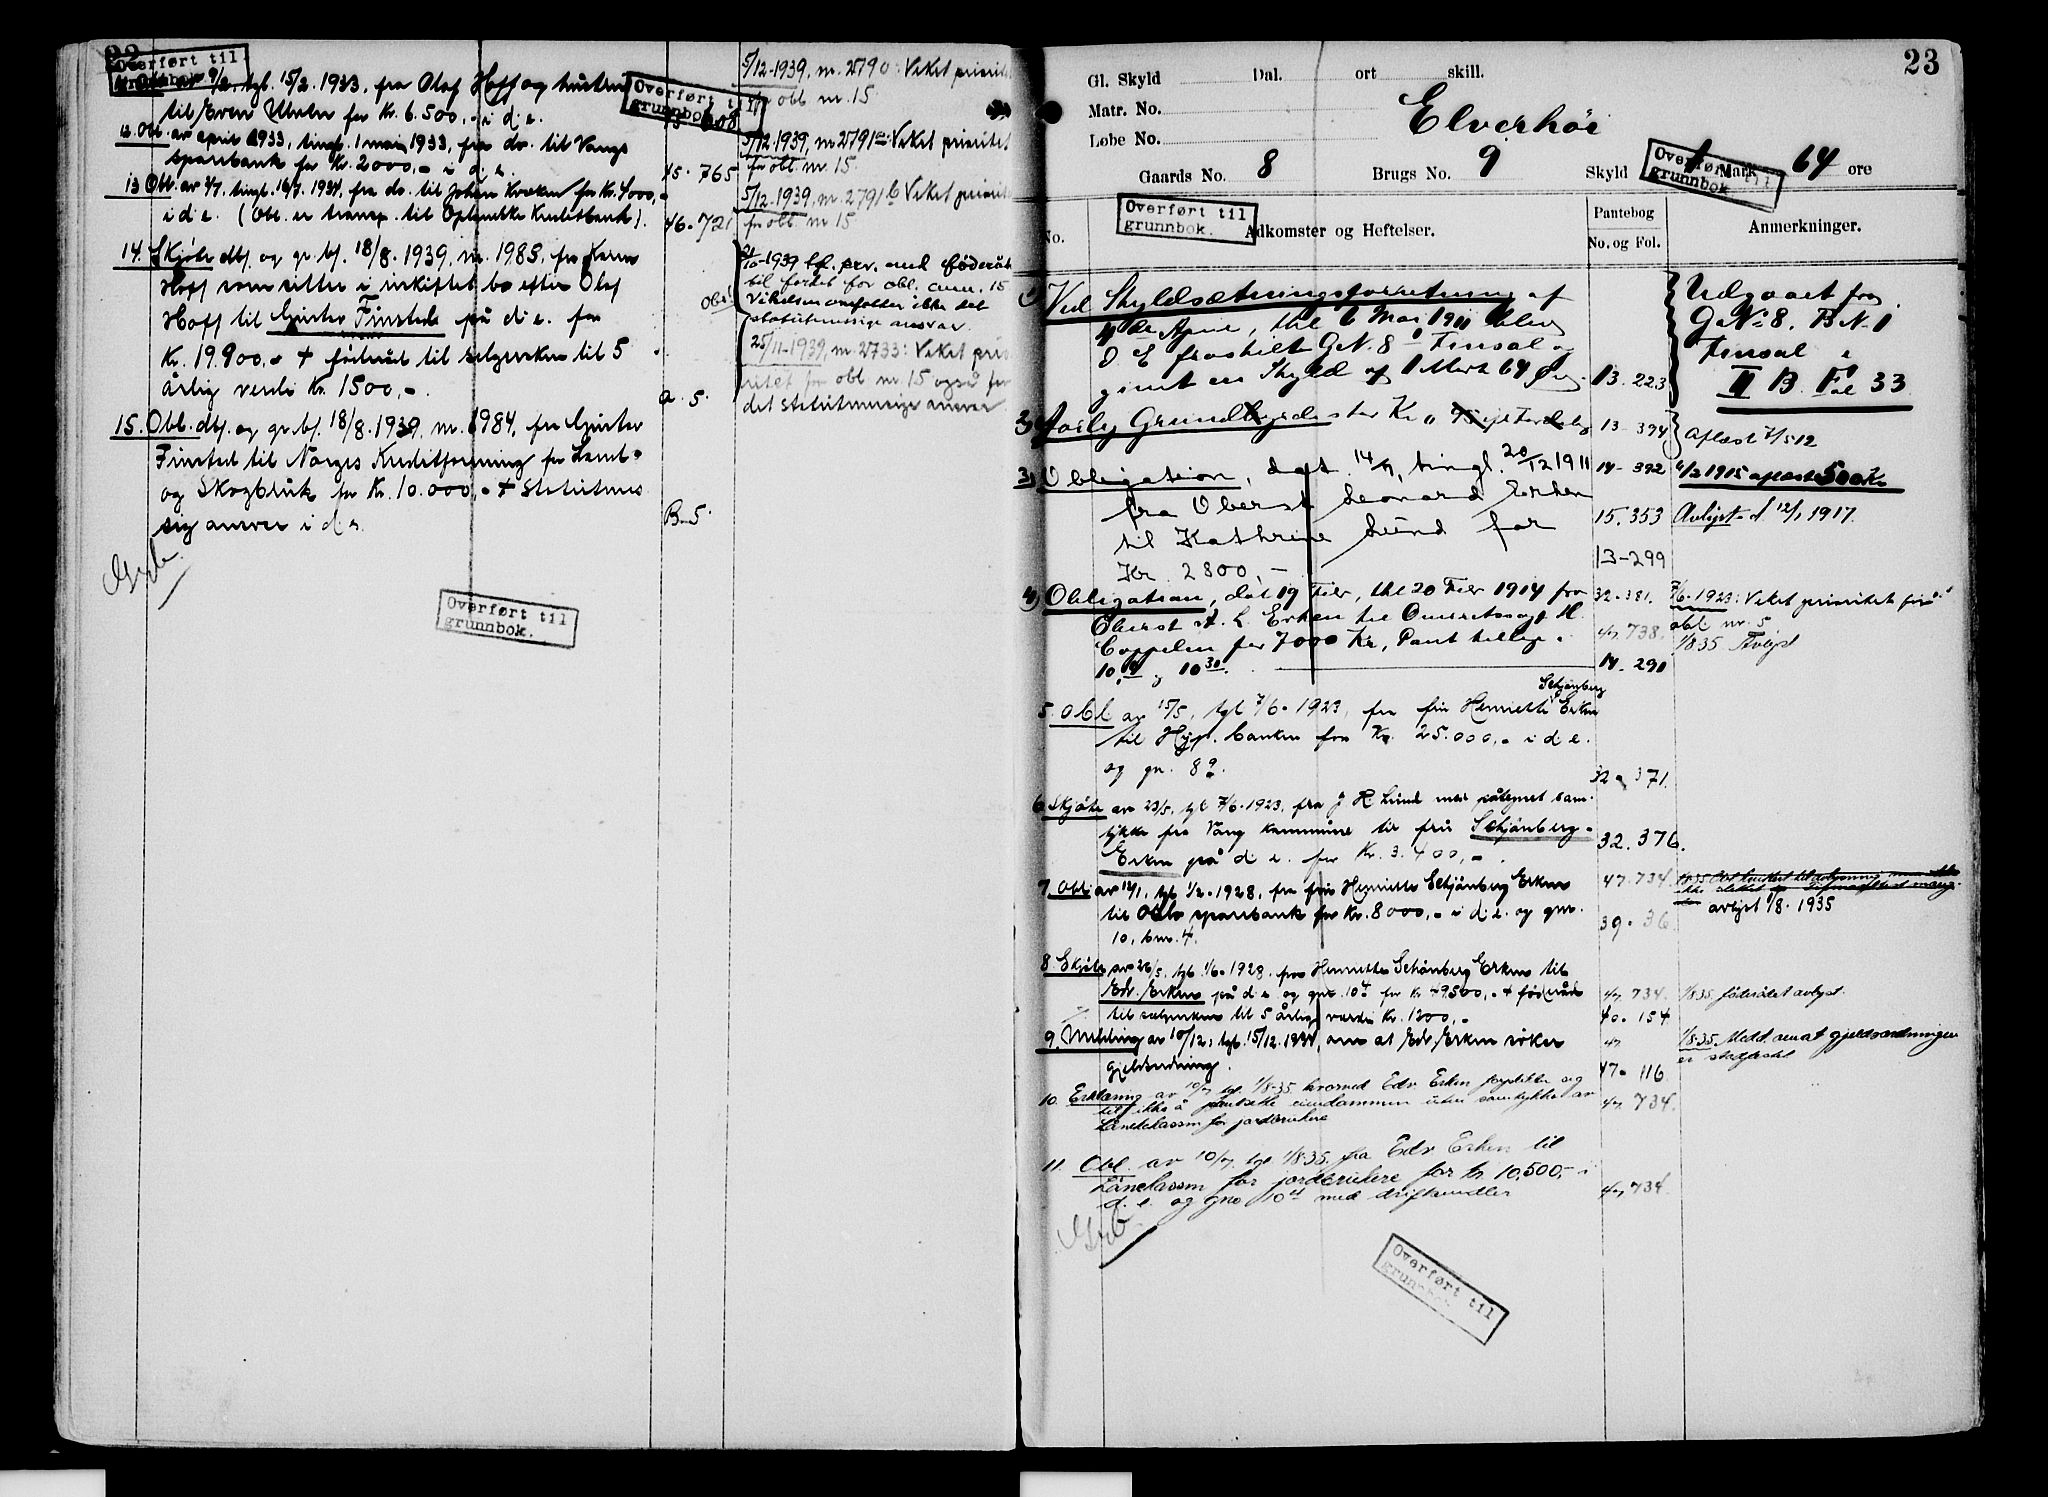 22
Overført til
grunnbok.
11. Obl. av 9/2, tgl. 15/2. 1933, fra Olaf Hoff og hustru
til Even Uhrlen for Kr. 6.500,- i d. e.
12. Obl. av april 1933, tingl. 1 mai 1933, fra do. til Vangs
sparebank for Kr. 2000,- i d. e.
45. 765
13 Obl. av 7/7. tingl. 16/7. 1934, fra do. til Johan Kvæken for Kr. 4000,-
i d. e. (Obl. er transp. til Oplandske Kreditbank).
46. 721
14. Skjøte dbf. og gr. bf. 18/8. 1939, nr. 1985, fra Karen
Hoff som sitter i uskiftet bo efter Olaf
Hoff til Gjerter Finstad på d. e. for
Kr. 19.900,- + føderåd til selgersken til 5
årlig verdi Kr. 1500,-.
a. 5.
15. Obl. dbf. og gr. bf. 18/8. 1939, nr. 1984, fra Gjerter
Finstad til Norges Kreditforening for Land-
og Skogbruk for Kr. 10.000,- + statutmes-
sig ansvar i d. e.
B. 5.
Overført til
grunnbok.
608
5/12-1939, nr. 2790: Veket prioritet
for obl. nr. 15
5/12. 1939, nr 2791a: Veket prioritet
for obl. nr. 15.
5/12-1939, nr. 2791b Veket prioritet
for obl. nr 15
Obs!
/10-1939 bf. erv. med føderåd
til fordel for obl. ann. 15
Vikelsen omfatter ikke det
statutmessige ansvar.
25/11-1939, nr. 2733: Veket prio-
ritet for obl nr. 15 også for
det statutmessige ansvar
Overført til
grunnbok.
23
Gl. Skyld Dal. ort skill.
Matr. No.
Løbe No.
Elverhöi
Gaards No. 8 Brugs No. 9 Skyld 1 Mark 64 øre
Overført til
grunnbok.
Overført til
grunnbok.
No. Adkomster og Heftelser.
Pantebog
No. og Fol.
Anmerkninger.
1) Ved Skyldsætningsforretning af
4de April, thl 6 Mai 1911 blev
d E fraskilt GN. 8 1 Finsal og
givet en Skyld af 1 Mark 64 Øre.
13. 223
Udgaaet fra
G No 8. B N 1
Finsal i
II B. Fol 33
Aarlig Grundbygdesler Kr
13-394
aflæst 7/5 12
3) Obligation, dat. 14/9, tingl. 20/12 1911
fra Oberst Leonard Erken
til Kathrine Lund for
Kr. 2800,-
14- 392
15. 353
13-299
6/3 1915 aflæst 500 Kr
Avlyst d. 12/1 1917.
4) Obligation, dat 19 Febr, thl 20 Febr 1914 fra
Oberst A. L. Erken til Overretssagf. H.
Coppelen for 7000 Kr, Pant tillige i
10,19 og 10 30.
32. 381.
47 738.
14. 290
7/6. 1923: Veket prioritet for
obl. nr. 5
1/8 35 Avlyst
5. Obl. av 15/5, tgl 7/6. 1923, fra fru Henriette Schjönberg Erken
til Hyp. banken for Kr. 25.000,- i d. e.
og gn. 8 2.
32. 371.
6. Skjøte av 23/5, tgl 7/6. 1923, fra J H Lund med påtegnet sam-
tykke fra Vang kommune til fru Schjönberg-
Erken på d. e. for Kr. 3.400,-.
32. 376.
7. Obl. av 12/1, tgl. 1/2. 1928, fra fru Henriette Schjönberg Erken
til Oslo sparebank for Kr. 8000,- i d. e. og gnr.
10, bnr. 4.
47. 734.
39. 36.
avlyst 1/8. 1935
8. Skjøte av 26/5, tgl. 1/6. 1928, fra Henriette Schönberg Erken til
Edv. Erken på d. e. og gnr. 10 4 for Kr 49.500,- + føderåd
til selgersken til 5 årlig verdi Kr. 1200,-
47 734.
40. 154
1/8 35, føderådet avlyst.
9. Melding av 10/12, tgl. 15/12. 1934, om at Edv. Erken söker
gjeldsordning.
47
47. 116.
1/8 35. Medd. om at gjeldsordningen
er stadfestet
10. Erklæring av 10/7 tgl. 1/8-35 hvorved Edv Erken forplikter sig
til ikke å pantsette eiendommen uten samtykke av
Lånekassen for jordbrukere
47 734.
11. Obl. av 10/7, tgl 1/8 35, fra Edv Erken til
Lånekassen for jordbrukere for kr. 10,500,- i
d. e. og gno 10 4 med driftsmidler
47 734.
Overført til
grunnbok.